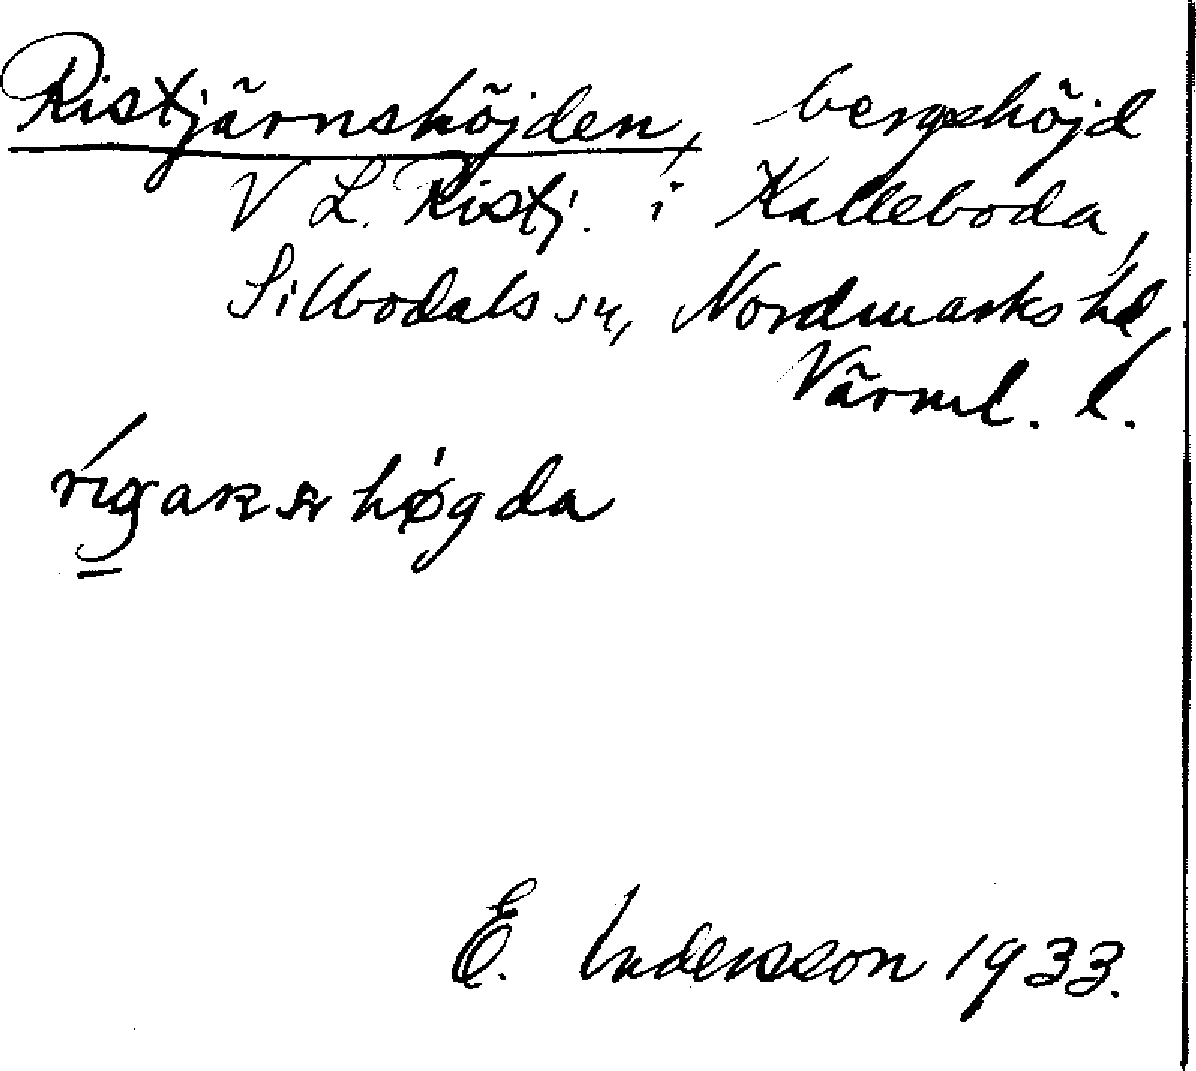 Ristjärnshöjden, bergshöjd
V L. Ristj. i Kalleboda,
Silbodals sn, Nordmarks hd,
Värml. l.
högda
E. Andersson 1933.